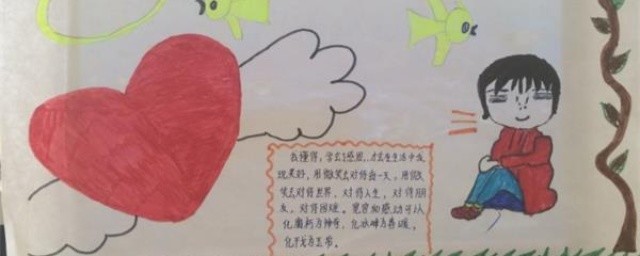 我懂得,学会感恩,才会在生活中发
现美好,用微笑去对待每一天,用微
笑去对待世界,对待人生,对待朋
友,对待困难。宽容和感动可以
化腐朽为神奇,化冰峰为春暖,
化干戈为玉帛。